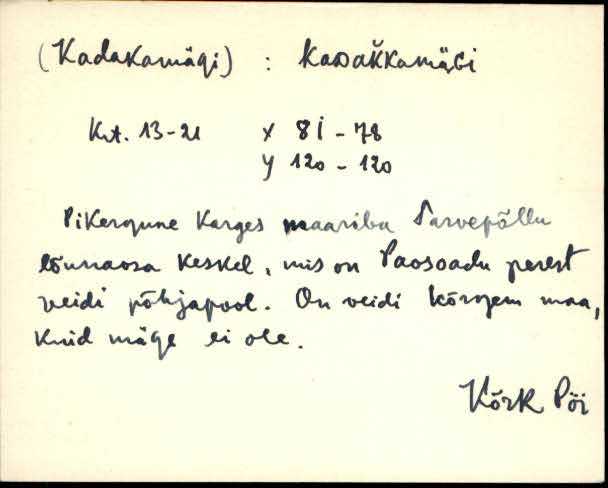 (Kadakamägi) : kaᴅak̆kamäɢi
Krt. 13-21 x 81 - 78
y 120 - 120
Pikergune karges maariba Parvepõllu
lõunaosa keskel, mis on Paosoadu perest
veidi põhjapool. On veidi kõrgem maa,
kuid mäge ei ole.
Kõrk Pöi